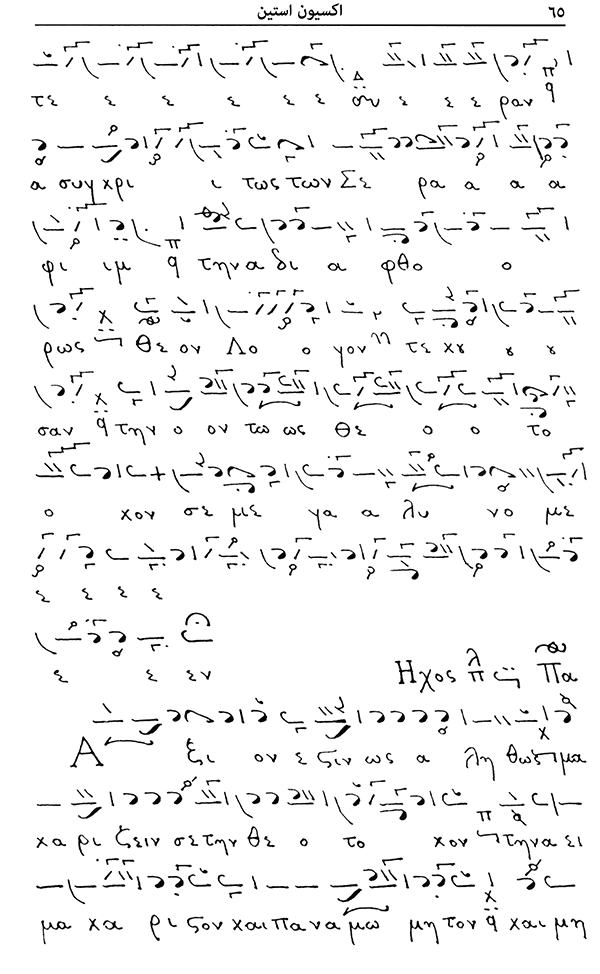 ٦٥ اكسيون استين
τε ε ε ε ε ε ε ε ε ραν
α συγ κρι ι τως των Σε ρα α α α
φι ιμ την α δι α φθο ο
ρως Θε ον Λο ο γον τε κȣ ȣ ȣ
σαν την ο ον τω ως Θε ο ο το
ο κον σε με γα α λυ νο με
ε ε ε ε
ε ε εν
Ηχος λ π Πα
Α ξι ον ε ϛιν ως α λη θως μα
κα ρι ζειν σε την Θε ο το κον την α ει
μα κα ρι ϛον και πα να μω μη τον και μη